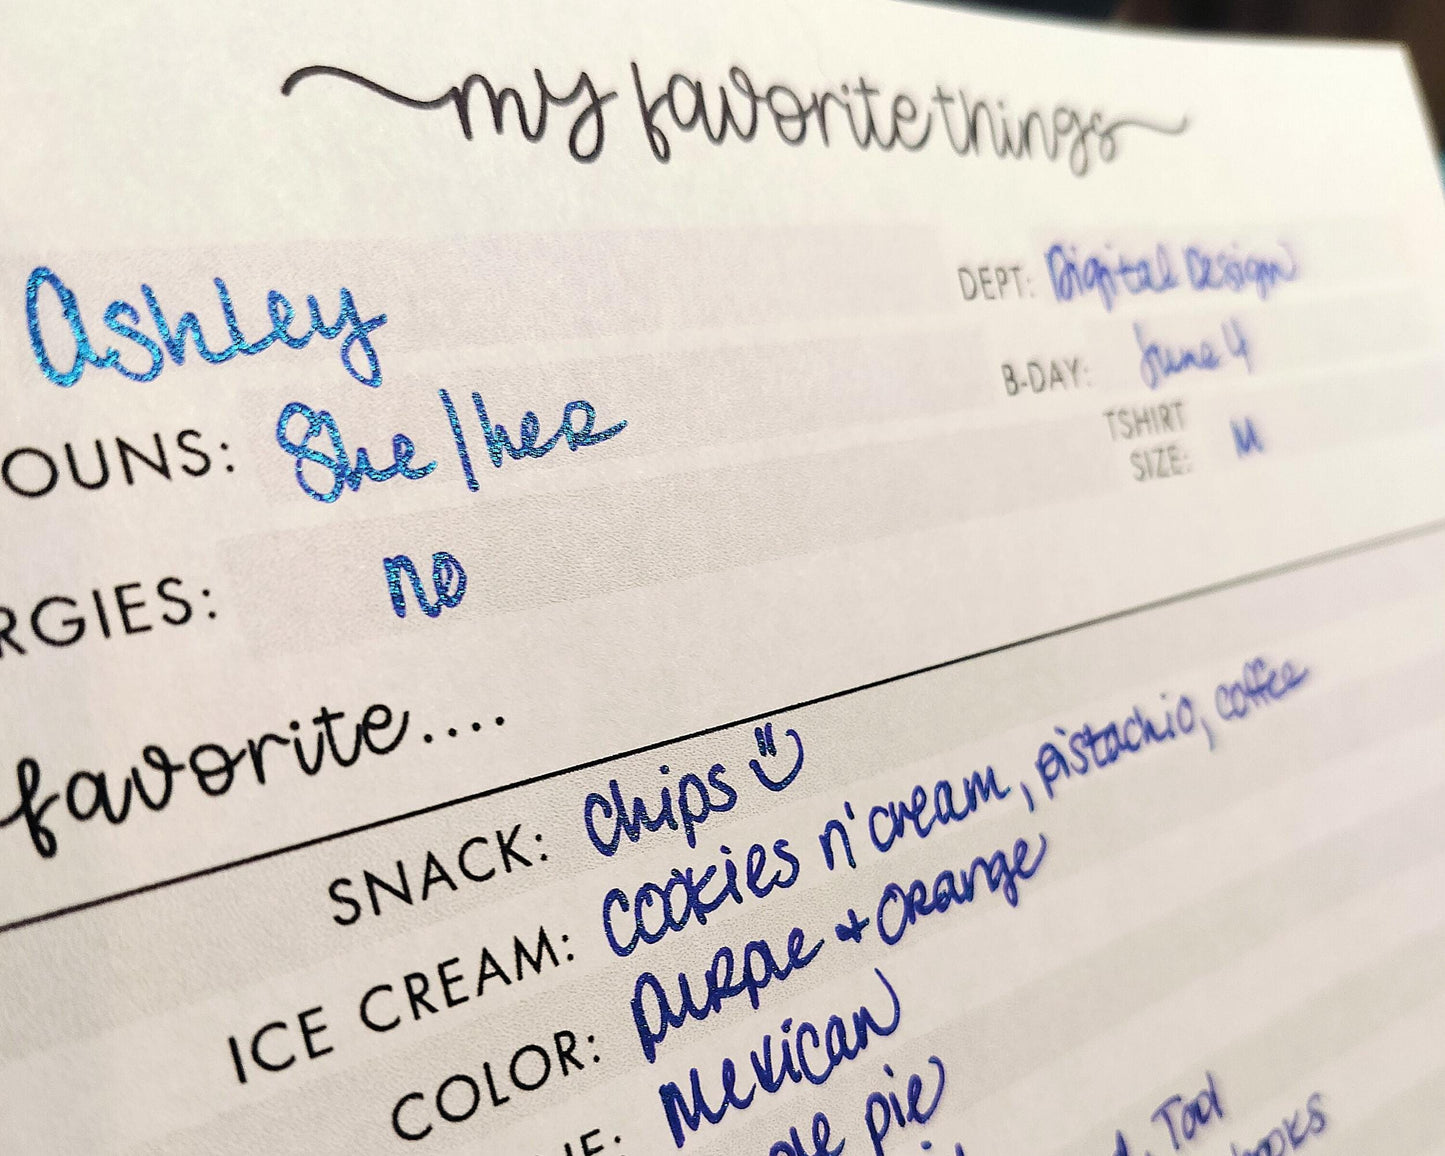 my favorite things
Ashley
DEPT: Digital Design
OUNS: She/her
B-DAY: June 4
RGIES: no
TSHIRT SIZE: M
favorite....
SNACK: chips
ICE CREAM: cookies n' cream, pistachio, coffee
COLOR: purple + orange
NE: Mexican
ple pie
Tool
books